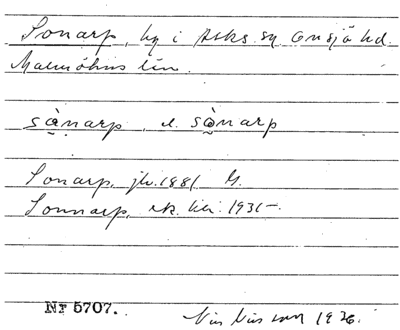 Sonarp, by i Asks sn Onsjö hd.
Malmöhus län.
sò̤narp, l. sò̤narp
Sonarp, jb. 1881
Sonnarp, 1931-
Nr 5707. Nils Nilsson 1936.